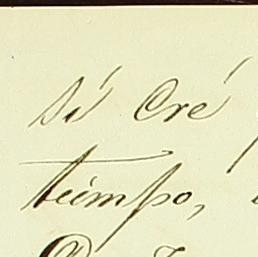 si Cré
tiempo,